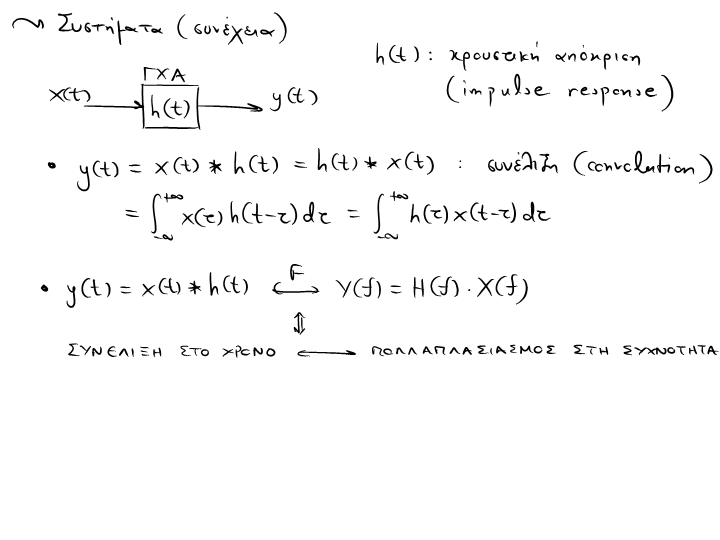 Συστήματα (συνέχεια)
h(t) : κρουστική απόκριση
(impulse response)
ΓΧΑ
x(t) → h(t) → y(t)
• y(t) = x(t) * h(t) = h(t) * x(t) : συνέλιξη (convolution)
= ∫_{-∞}^{+∞} x(τ) h(t-τ) dτ = ∫_{-∞}^{+∞} h(τ) x(t-τ) dτ
• y(t) = x(t) * h(t) ⟷^F Y(f) = H(f) · X(f)
⇕
ΣΥΝΕΛΙΞΗ ΣΤΟ ΧΡΟΝΟ ⟷ ΠΟΛΛΑΠΛΑΣΙΑΣΜΟΣ ΣΤΗ ΣΥΧΝΟΤΗΤΑ